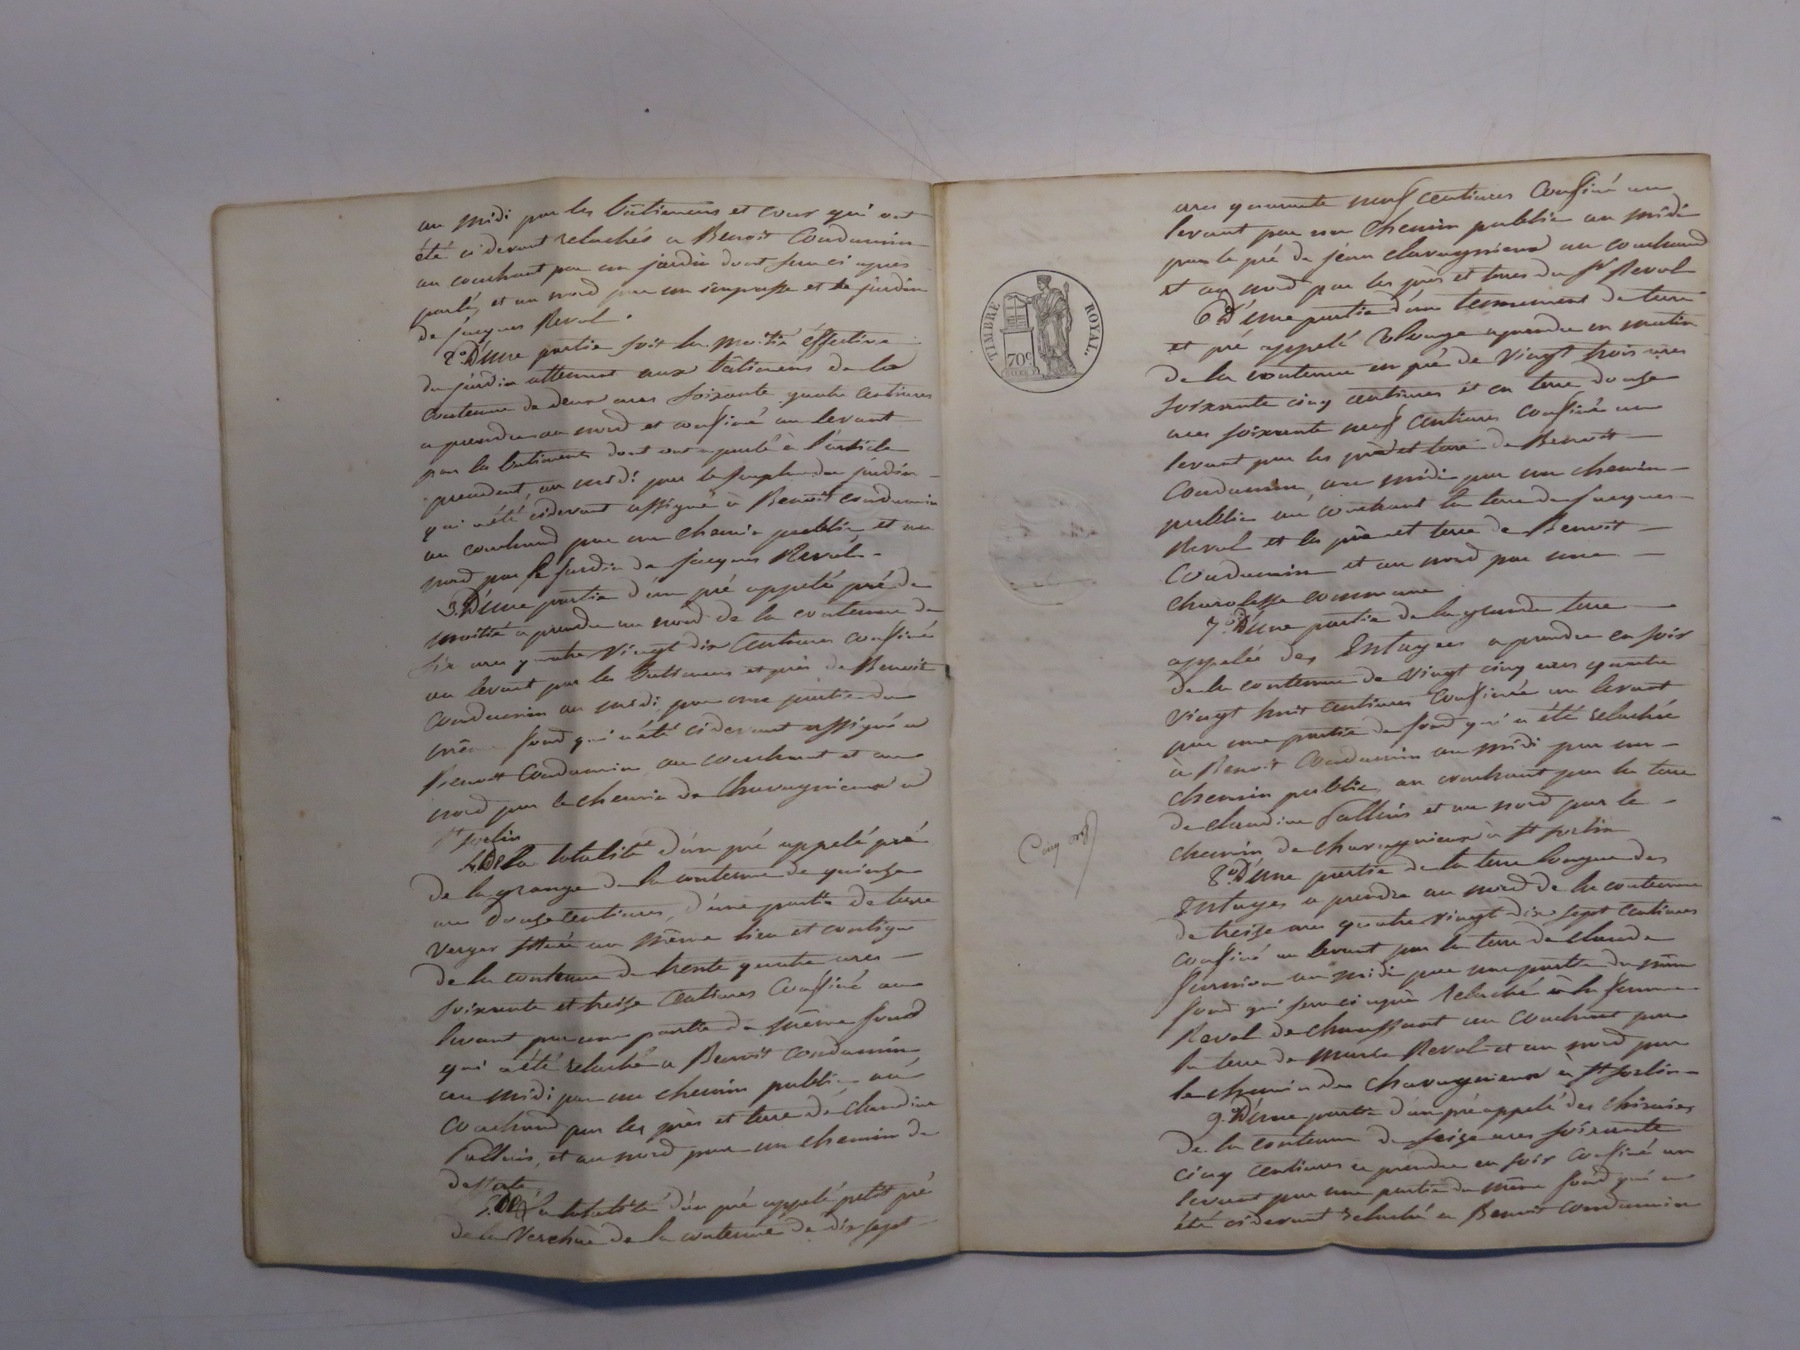 au midi par les bâtiments et cour qui ont
été cidevant relachés a Benoit Condamin
au couchant par un jardin dont sera ci après
parlé, et au nord par un impasse et le jardin
de Jacques Revol.
2° D'Une partie soit la moitié éffective
du jardin attenant aux bâtimens de la
contenue de deux ares soixante quatre centiares
a prendre au nord et confiné au levant
par les batiments dont on a parlé à l'article
precedent, au midi par le surplus du jardin
qui a été cidevant assigné à Benoit Condamin
au couchant par un chemin public, et au
nord par le jardin de Jacques Revol.
3° D'Une partie d'un pré appelé pré de
moitié a prendre au nord de la contenue de
six ares quatre vingt dix centiares confiné
au levant par les batimens et près de Benoit
Condamin au midi, par une partie du
même fond qui a été cidevant assigné a
Benoit Condamin au couchant et au
nord par le chemin de Chavagnieux a
St Jorlin
4° De la totalité d'un pré appelé pré
de la grange de la contenue de quinze
ares douze centiares, d'une partie de terre
verger située au même lieu et contigue
de la contenue de trente quatre ares
soixante et treize centiares confiné au
levant par une partie du même fond
qui a été relaché a Benoit Condamin
au midi par un chemin public au
couchant par les près et terre de Claudine
Pallues, et au nord par un chemin de
desserte
5° De la totalité d'un pré appelé petit pré
de la Verchere de la contenue de dix sept
TIMBRE ROYAL.
70c
ares quarante neuf centiares confiné au
levant par un chemin public au midi
par le pré de jean clavagnieux au couchant
et au nord par les près et terres du Sr Revol
6° D'Une partie d'un tennement de terre
et pré appelé a prendre en matin
de la contenue en pré de vingt trois ares
soixante cinq centiares et en terre douze
ares soixante neuf centiares confiné au
levant par les près et terre de Benoit
Condamin, au midi par un chemin
public au couchant la terre de Jacques
Revol et les près et terre de Benoit
Condamin et au nord par une
commune
7° D'Une partie de la grande terre
appelée des Entages a prendre en soir
de la contenue de vingt cinq ares quatre
vingt huit centiares confinée au levant
par une partie de fond qui a été relachée
à Benoit Condamin au midi par un
chemin public, au couchant par la terre
de claudine Pallues et au nord par le
chemin de chavagnieux à St Jorlin
8° D'Une partie de la terre longue des
Entages a prendre au nord de la contenue
de treize ares quatre vingt dix sept centiares
confiné au levant par la terre de claude
au midi par une partie du même
fond qui sera ci après relaché a la femme
Revol de chauffant au couchant par
la terre de Marie Revol et au nord par
le chemin de Chavagnieux à St Jorlin
9° D'Une partie d'un pré appelé des
de la contenue de seize ares soixante
cinq centiares a prendre en soir confiné au
levant par une partie du même fond qui a
été cidevant relaché a Benoit Condamin